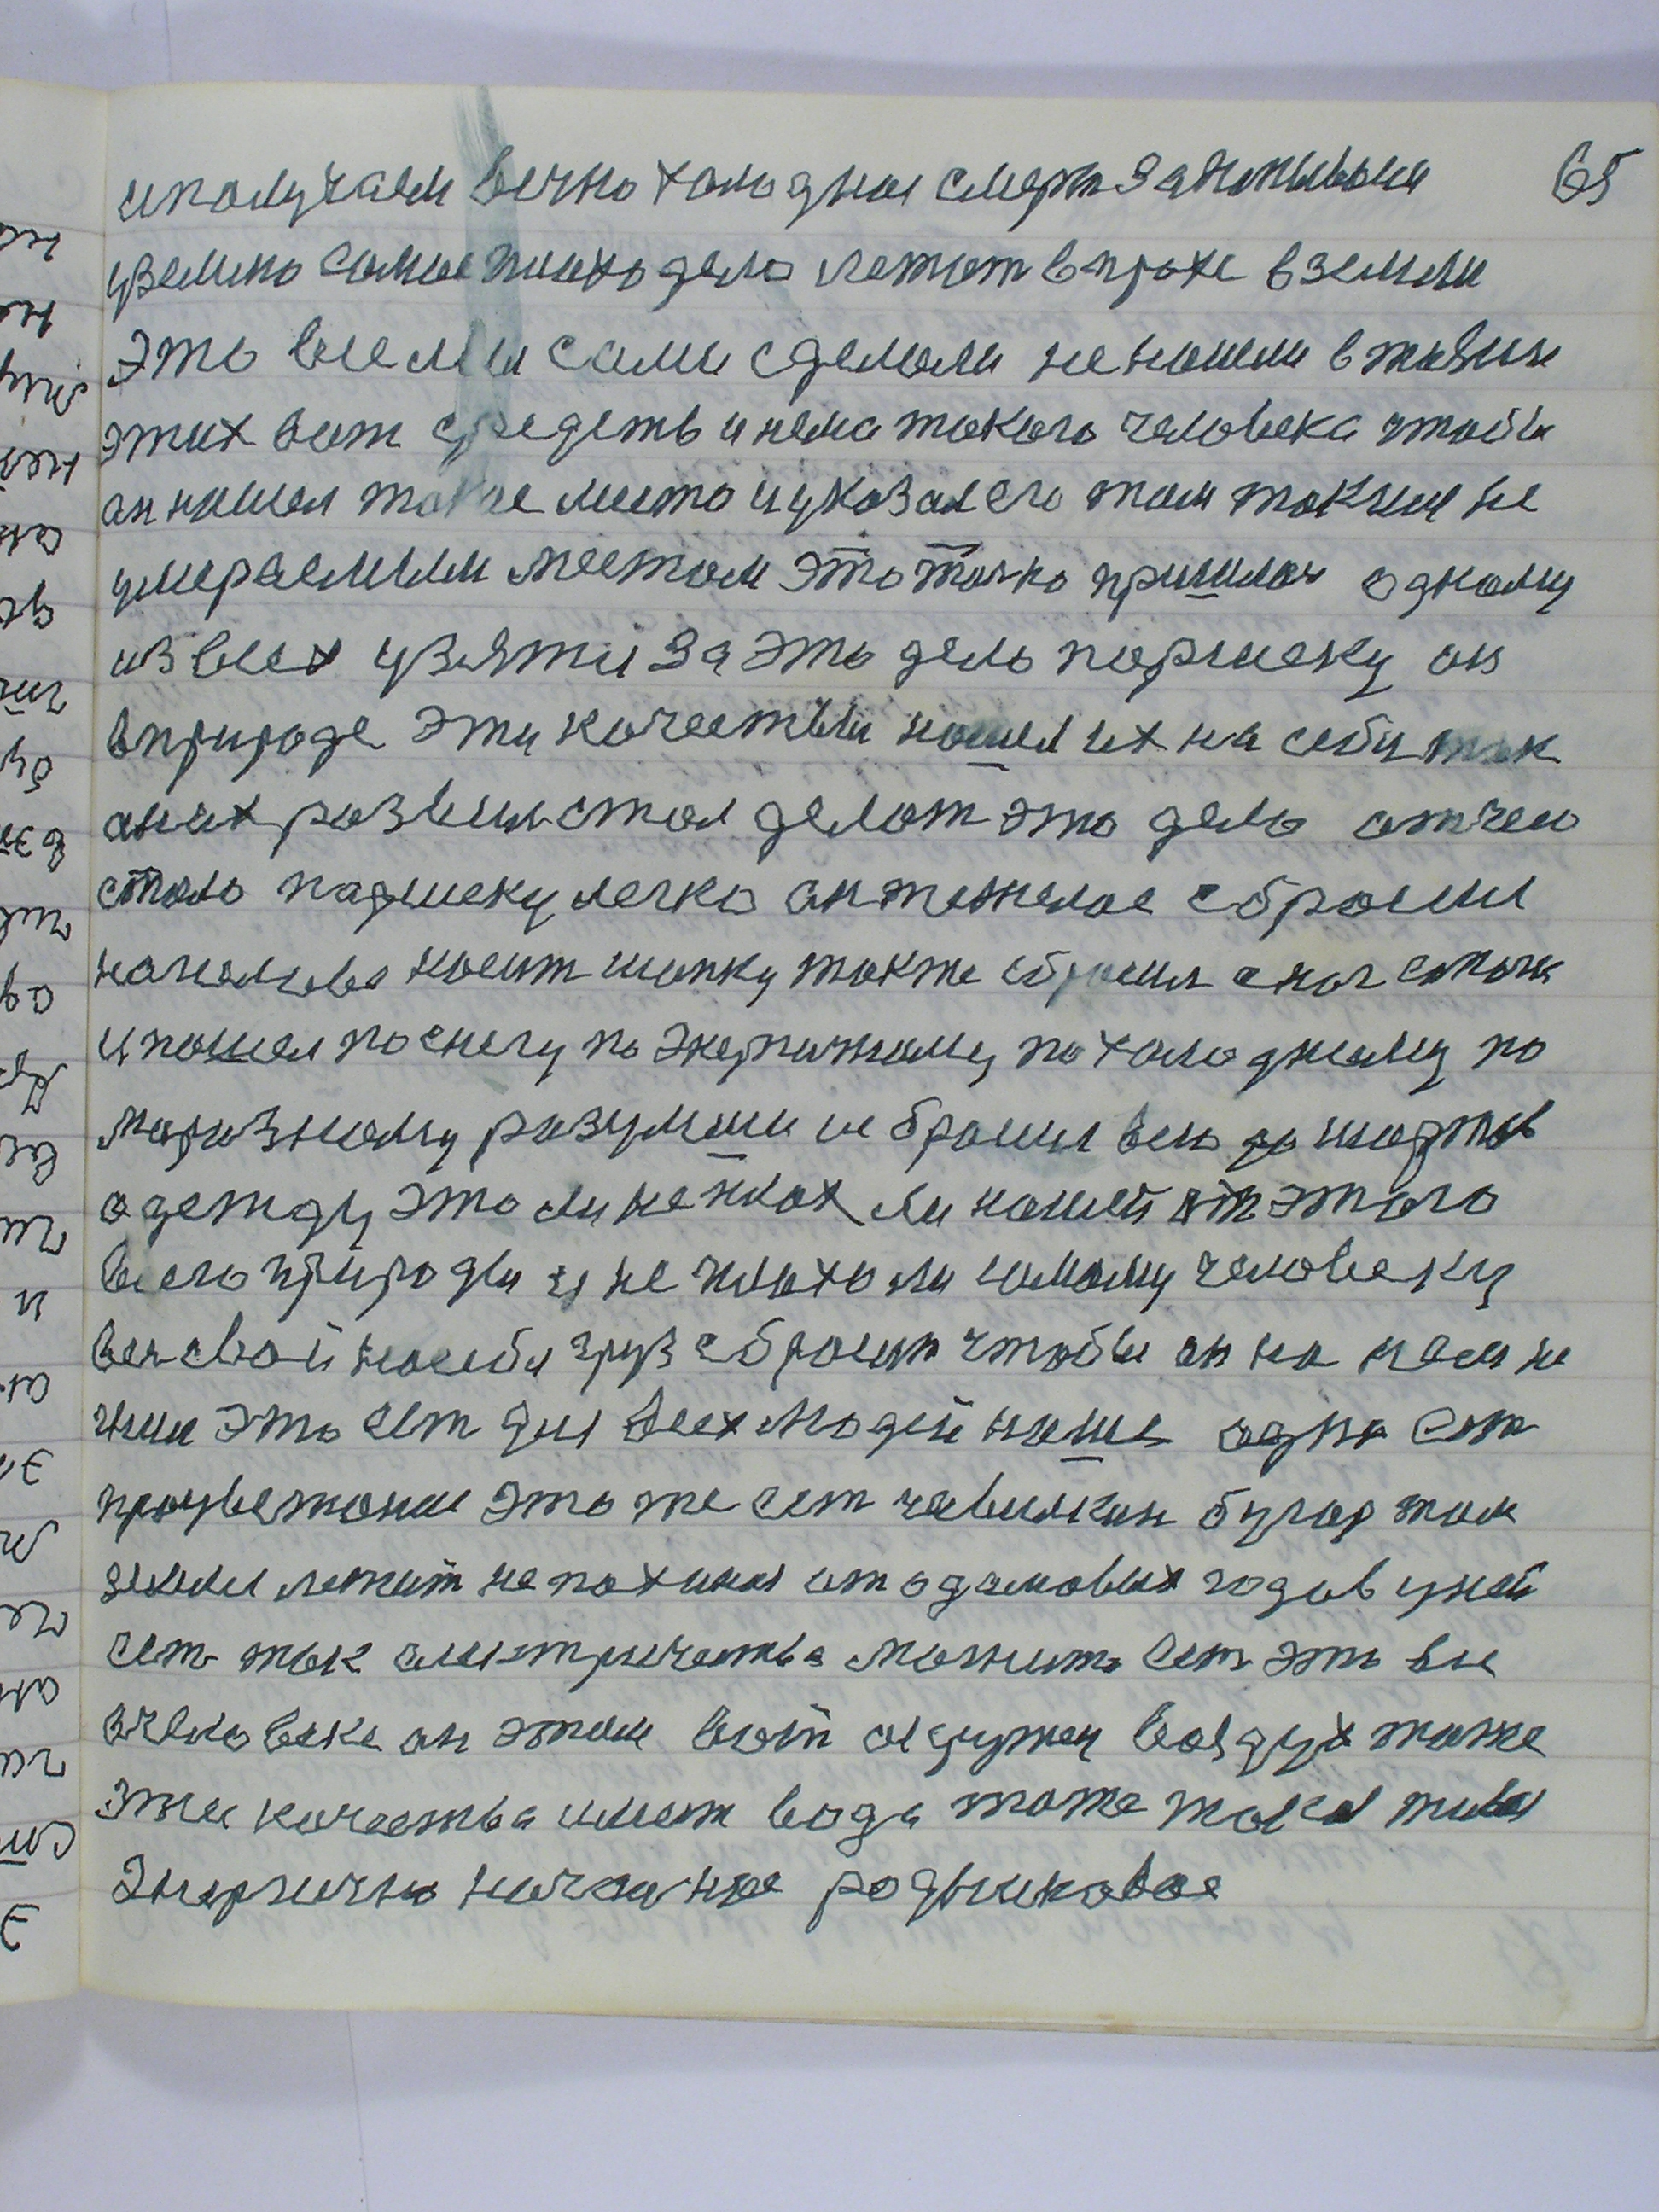 65
и получаем вечно холодная смерть
узелино самое плохо дело лежат в прахе в земли
это все мы сами сделали не нашли в жизни
этих вот средств и нема такого человека чтобы
он нашел такое место и указал его там таким не
умераемым местом это только пришлось одному
из всех узяти за это дело паршеку он
в природе эти качествы нашел их на себи так
он их развил стал делат это дело от чего
стало паршеку легко он тежелое сбросил
носит шапку также сбросил с ног сапоги
и пошел по снегу по энергичному по холодному по
морозному разумши и бросил всю до шортов
одежду это ли не плох ли нашей от этого
всего природы и не плохо ли самому человеку
весь свой на себя груз сбросит чтобы он на нем не
это ест для всех людей наше одно ест
процветание это же ест чивилкин бугор там
земли лежит не паханая от адамовых годов у ней
ест так электричества магнито ест это все
в человеке он этим вот окружен воздух тоже
эти качества имеет вода тоже такая жывая
энергично родьниковое